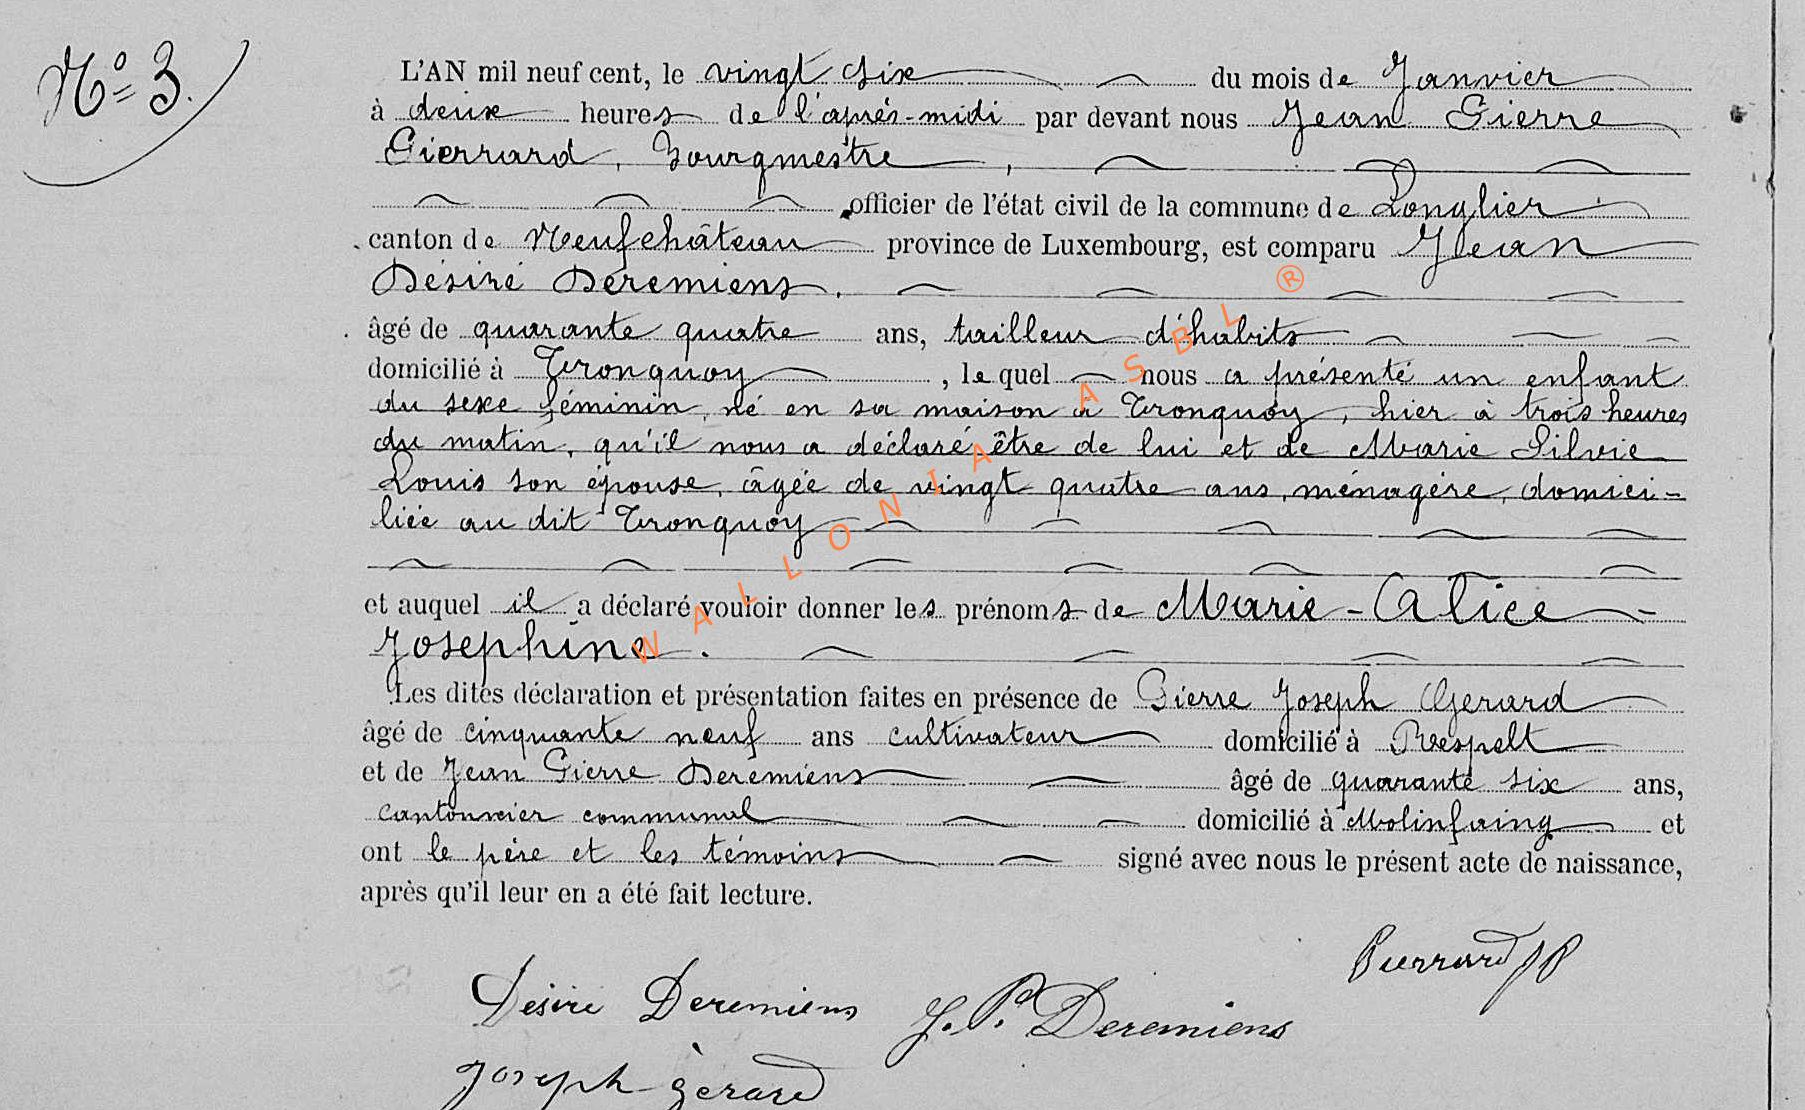 N° 3.
L'AN mil neuf cent, le vingt six du mois de Janvier
à deux heures de l'après-midi par devant nous Jean Pierre
Pierrard, Bourgmestre,
officier de l'état civil de la commune de Longlier
canton de Neufchâteau province de Luxembourg, est comparu Jean
Désiré Deremiens.
âgé de quarante quatre ans, tailleur d'habits
domicilié à Tronquoy, lequel nous a présenté un enfant
du sexe féminin, né en sa maison à Tronquoy, hier à trois heures
du matin, qu'il nous a déclaré être de lui et de Marie Silvie
Louis son épouse, âgée de vingt quatre ans, ménagère, domici-
liée au dit Tronquoy
et auquel il a déclaré vouloir donner les prénoms de Marie-Alice-
Josephine.
Les dites déclaration et présentation faites en présence de Pierre Joseph Gerard
âgé de cinquante neuf ans cultivateur domicilié à Respelt
et de Jean Pierre Deremiens âgé de quarante six ans,
cantonnier communal domicilié à Molinfaing et
ont le père et les témoins signé avec nous le présent acte de naissance,
après qu'il leur en a été fait lecture.
Pierrard JP
Désiré Deremiens J. P. Deremiens
Joseph gerard
WALLONIA ASBL ®